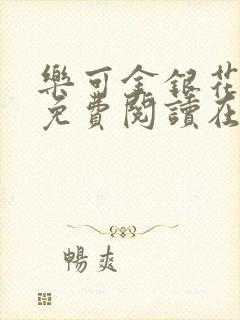 樂可金銀花
免費閱讀在
暢爽